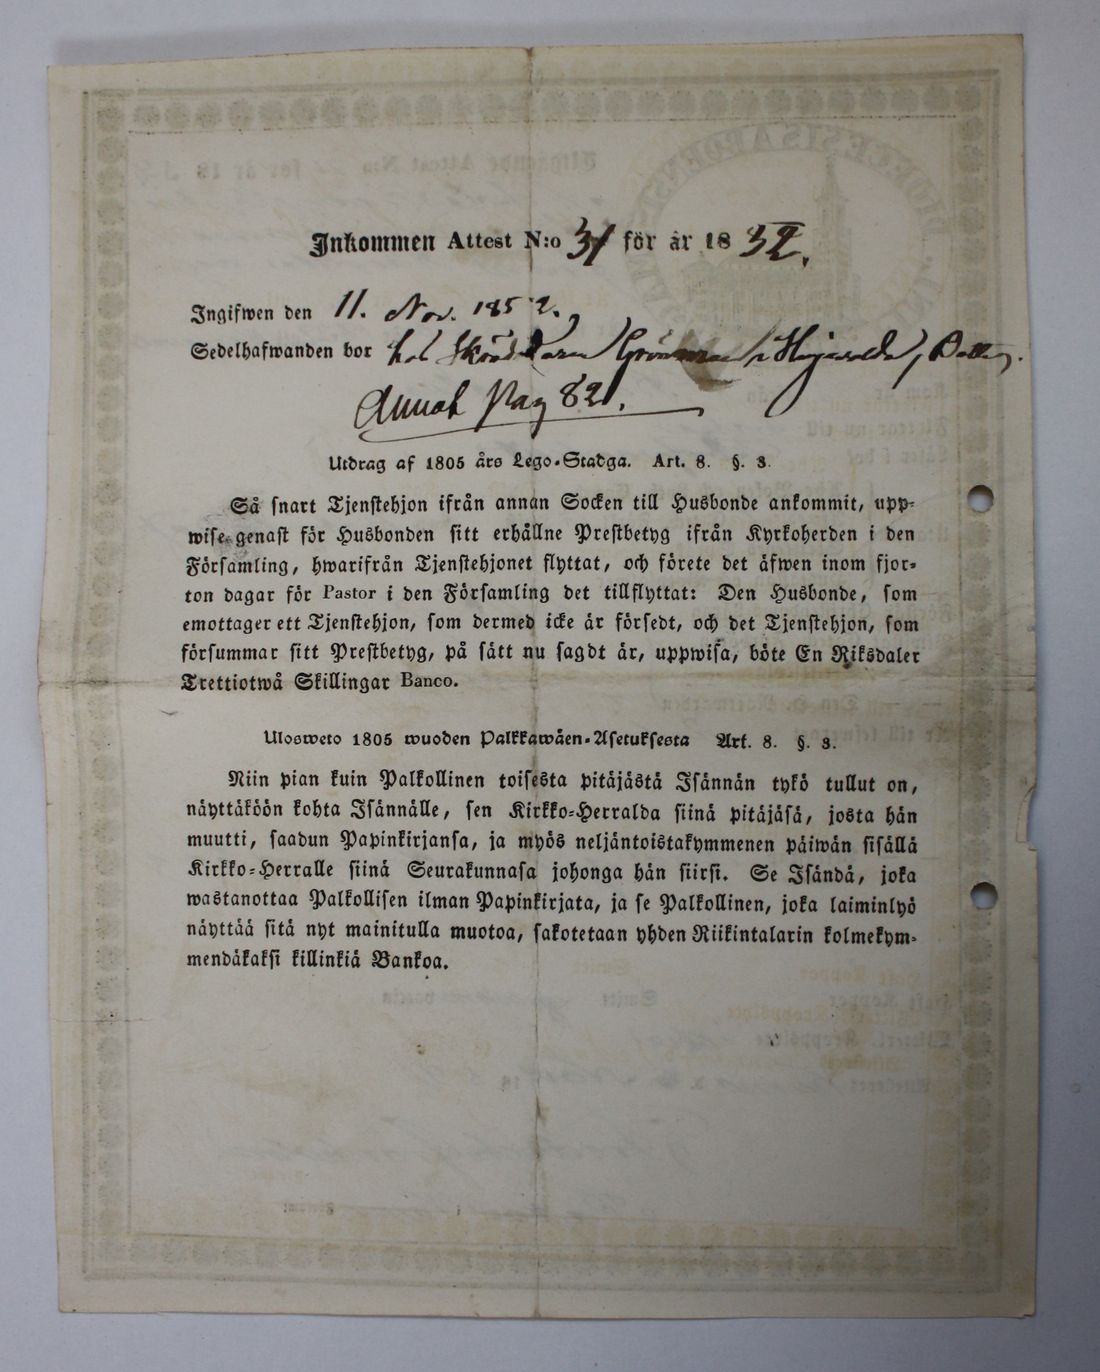 Inkommen Attest N:o 31 för år 1852.
Ingifwen den 11. Nov. 1852.
Sedelhafwanden bor hos i
Annot pag 82.
Utdrag af 1805 års Lego-Stadga. Art. 8. §. 3.
Så snart Tjenstehjon ifrån annan Socken till Husbonde ankommit, upp-
wise genast för Husbonden sitt erhållne Prestbetyg ifrån Kyrkoherden i den
Församling, hwarifrån Tjenstehjonet flyttat, och förete det äfwen inom fjor-
ton dagar för Pastor i den Församling det tillflyttat: Den Husbonde, som
emottager ett Tjenstehjon, som dermed icke är försedt, och det Tjenstehjon, som
försummar sitt Prestbetyg, på sätt nu sagdt är, uppwisa, böte En Riksdaler
Trettiotwå Skillingar Banco.
Ulosweto 1805 wuoden Palkkawäen-Asetuksesta Art. 8. §. 3.
Niin pian kuin Palkollinen toisesta pitäjästä Isännän tykö tullut on,
näyttäköön kohta Isännälle, sen Kirkko-Herralda siinä pitäjäsä, josta hän
muutti, saadun Papinkirjansa, ja myös neljäntoistakymmenen päiwän sisällä
Kirkko-Herralle siinä Seurakunnasa johonga hän siirsi. Se Isändä, joka
wastanottaa Palkollisen ilman Papinkirjata, ja se Palkollinen, joka laiminlyö
näyttää sitä nyt mainitulla muotoa, sakotetaan yhden Riikintalarin kolmekym-
mendäkaksi killinkiä Bankoa.